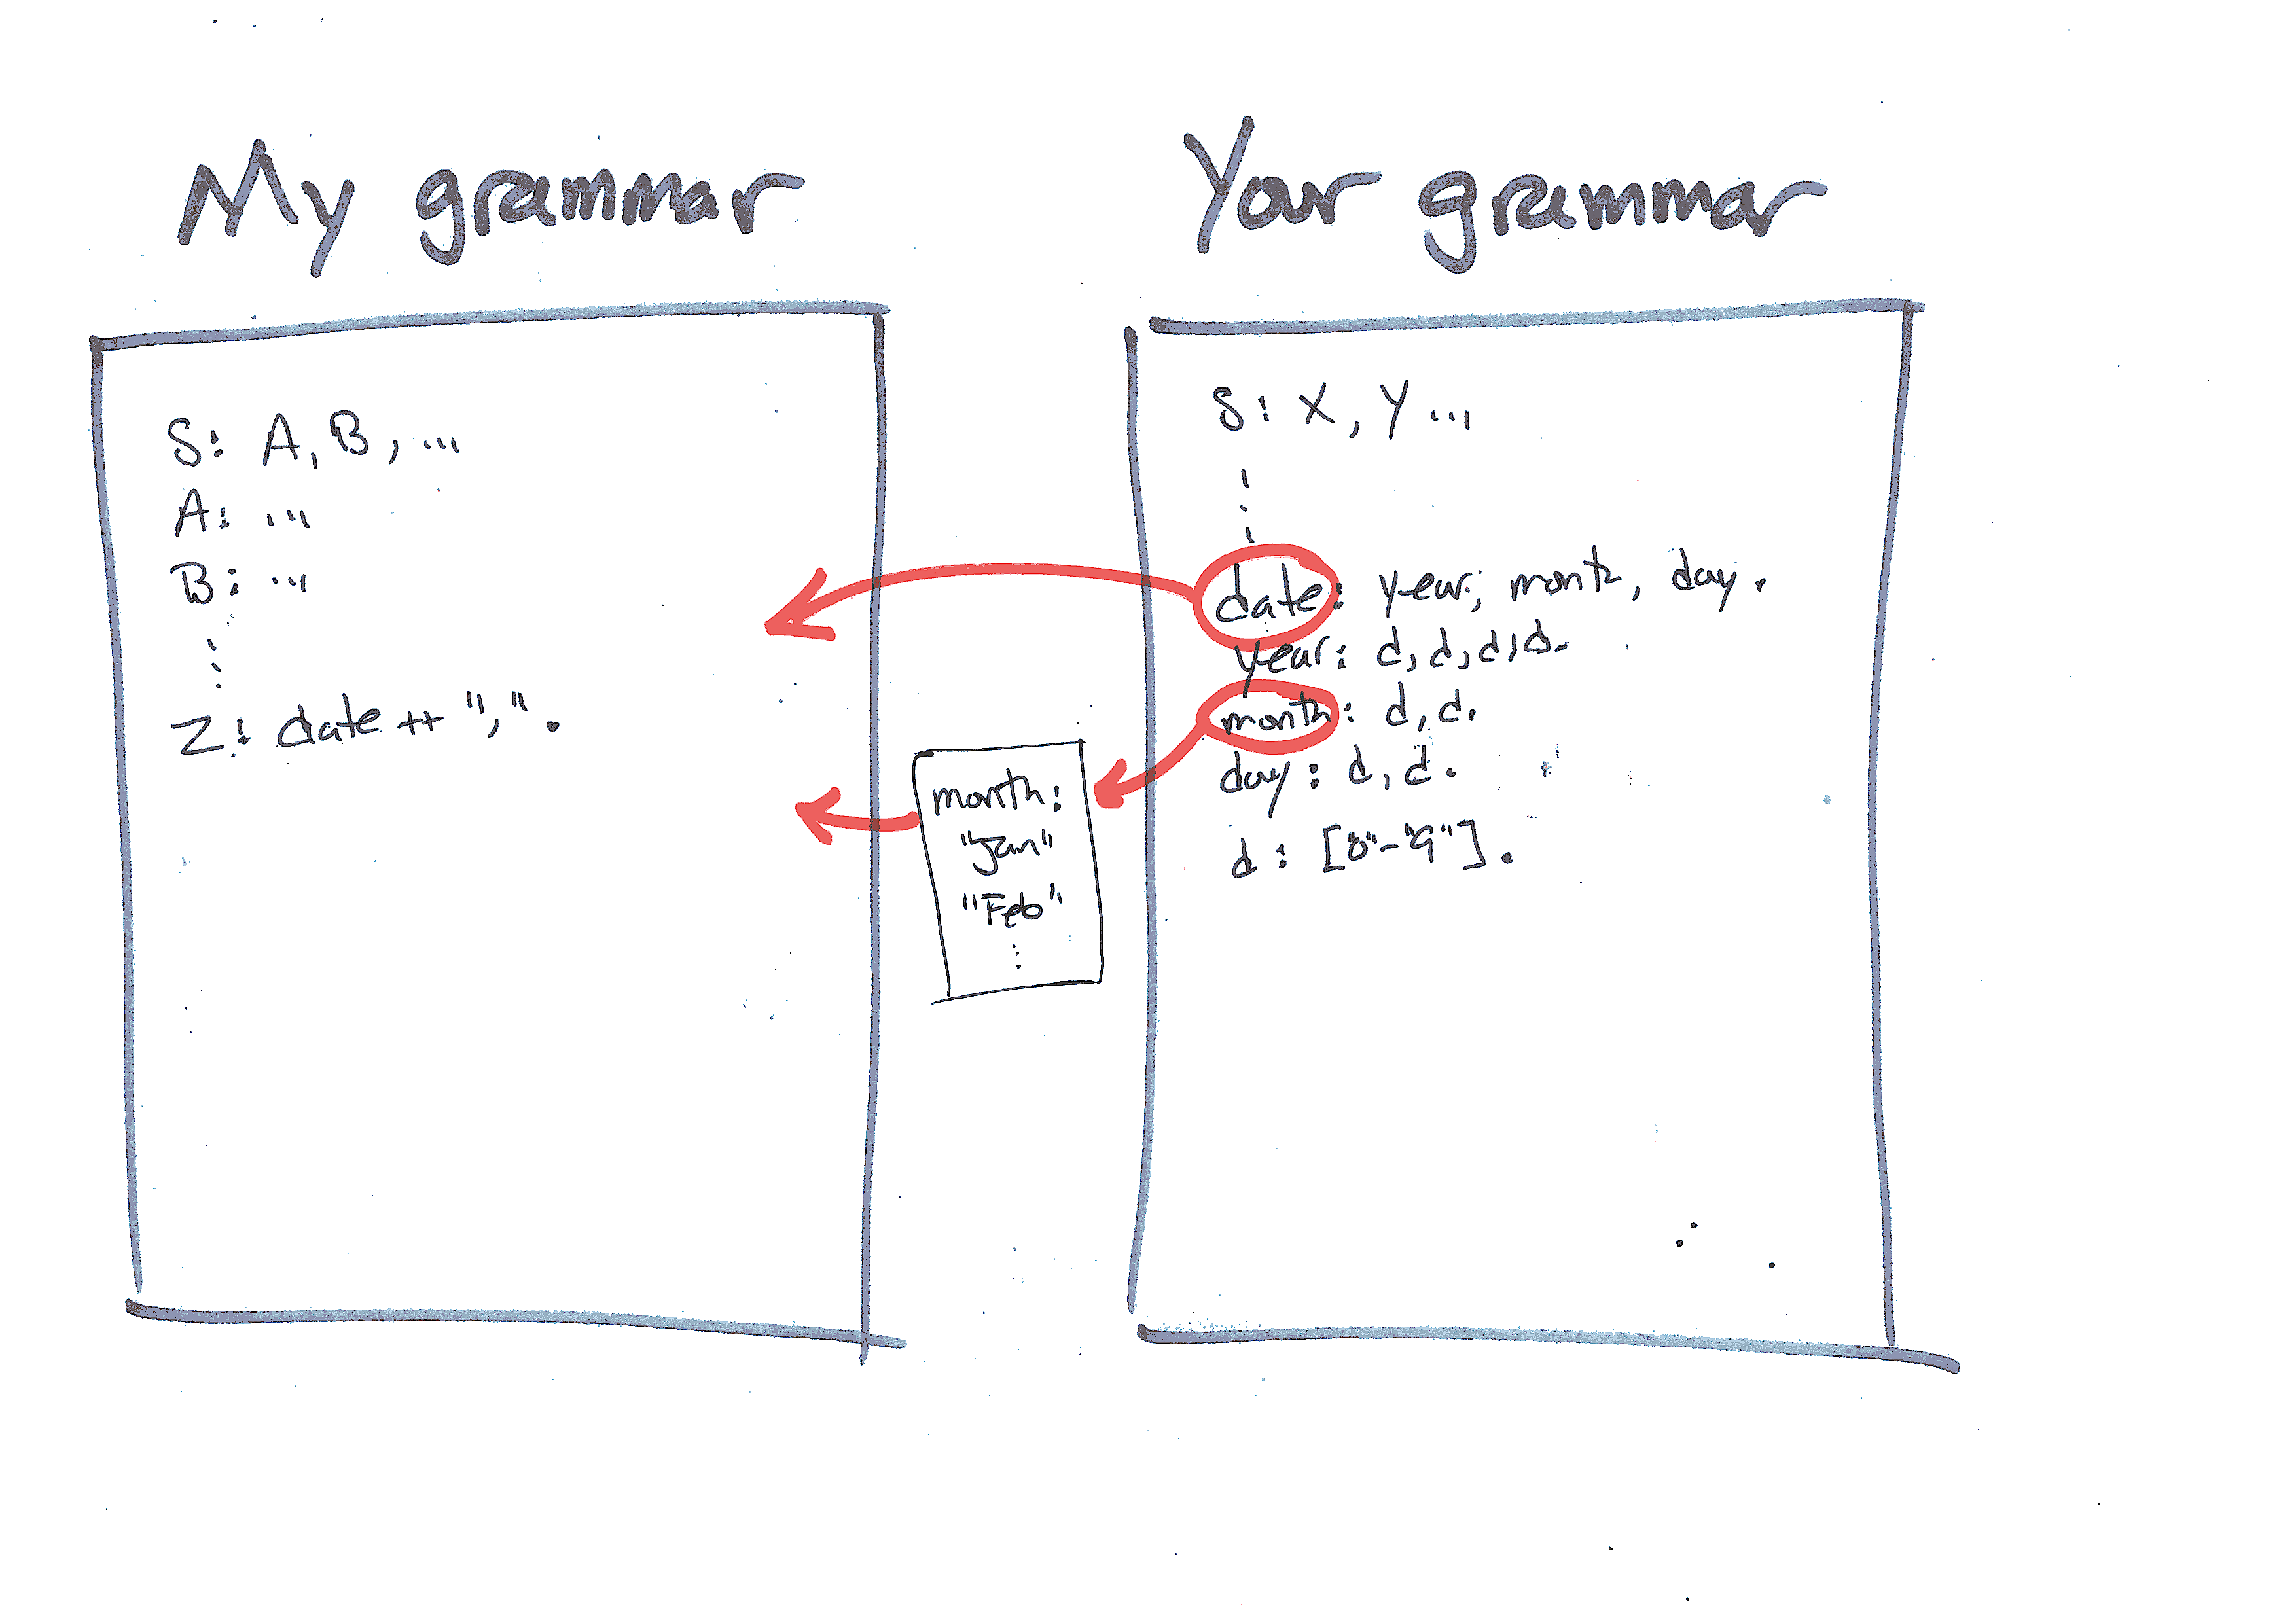 My grammar
S: A, B, ...
A: ...
B: ...
⋮
Z: date ++ ",".
month:
"Jan"
"Feb"
⋮
Your grammar
S: X, Y ...
⋮
date: year, month, day.
year: d, d, d, d.
month: d, d.
day: d, d.
d: ["0"-"9"].